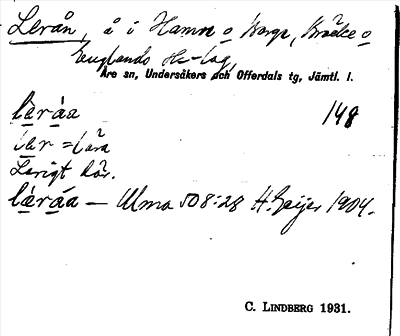 Lerån, å i Hamre o Borga, Bräcke o
Englands He-lag,
Åre sn, Undersåkers och Offerdals tg, Jämtl. l.
lèråa 148
ler = lera
Lerigt där.
lèråa — Ulma 508:28 H. Geijer 1904.
C. LINDBERG 1931.